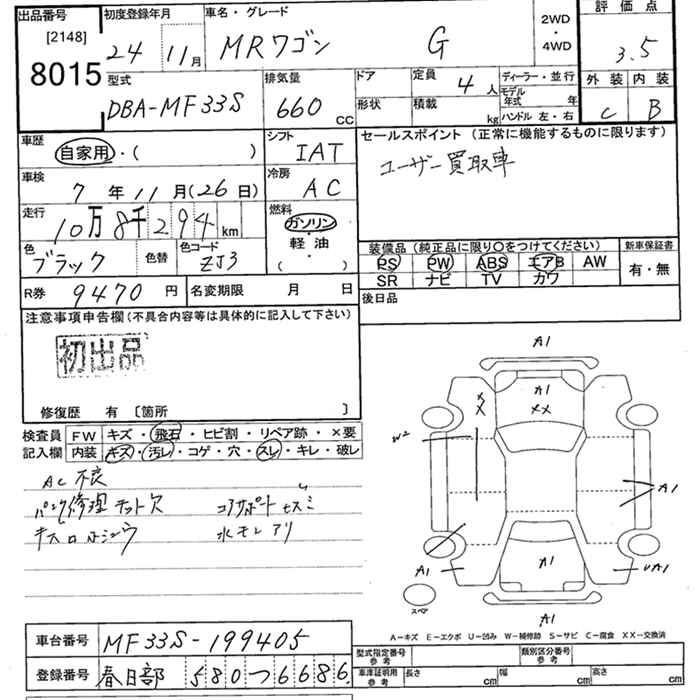 出品番号 [2148] 8015
初度登録年月 24 11月
車名・グレード MRワゴン G
2WD ・ 4WD
評価点 3.5
外装 内装
C B
型式 DBA-MF33S
排気量 660 CC
ドア 定員 4人
形状 積載 kg
ディーラー・並行
モデル年式 年
ハンドル 左・右
車歴 自家用・( )
シフト IAT
セールスポイント (正常に機能するものに限ります)
ユーザー買取車
車検 7年11月(26日)
冷房 AC
走行 10万8千294km
燃料 ガソリン・軽油・( )
色 ブラック 色替 色コード ZJ3
装備品(純正品に限り○をつけてください) 新車保証書
PS PW ABS エアB AW 有・無
SR ナビ TV カワ
R券 9470円 名変期限 月 日
後日品
注意事項申告欄(不具合内容等は具体的に記入して下さい)
初出品
修復歴 有 〔箇所 〕
検査員 FW キズ・飛石・ヒビ割・リペア跡・×要
記入欄 内装 キズ・汚レ・コゲ・穴・スレ・キレ・破レ
AC不良
パンク修理キット欠 コアサポートセスミ
水モレアリ
A1
A1
XX
XX
W2
A1
A1
A1
UA1
スペア
A1
A-キズ E-エクボ U-凹み W-補修跡 S-サビ C-腐食 XX-交換済
車台番号 MF33S-199405
登録番号 春日部 580つ6686
型式指定番号 参考 類別区分番号 参考
車庫証明用 参考 長さ cm 幅 cm 高さ cm